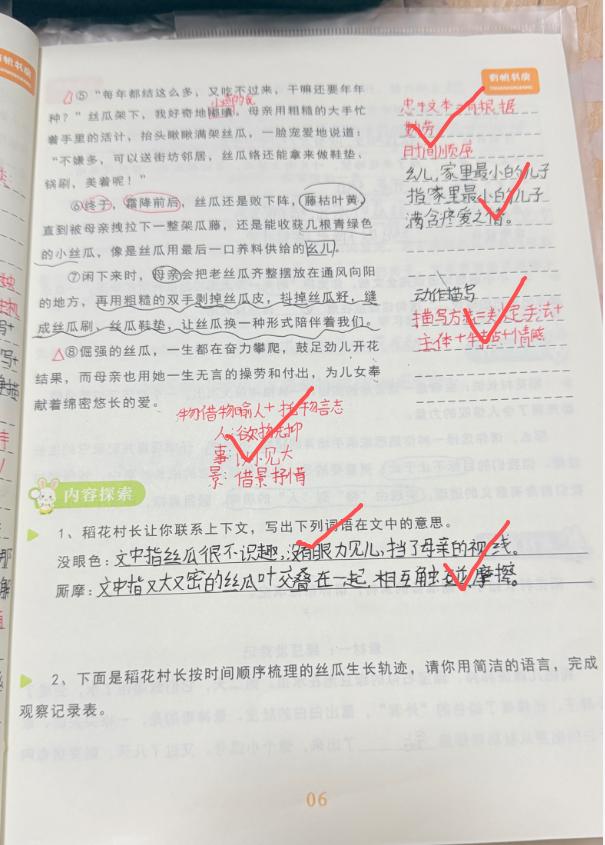 有帆书房
⑤“每年都结这么多，又吃不过来，干嘛还要年年
种？”丝瓜架下，我好奇地嘟囔，母亲用粗糙的大手忙
着手里的活计，抬头瞅瞅满架丝瓜，一脸宠爱地说道：
“不嫌多，可以送街坊邻居，丝瓜络还能拿来做鞋垫、
锅刷，美着呢！”
⑥终于，霜降前后，丝瓜还是败下阵，藤枯叶黄，
直到被母亲拽拉下一整架瓜藤，还是能收获几根青绿色
的小丝瓜，像是丝瓜用最后一口养料供给的幺儿。
⑦闲下来时，母亲会把老丝瓜齐整摆放在通风向阳
的地方，再用粗糙的双手剥掉丝瓜皮，抖掉丝瓜籽，缝
成丝瓜刷、丝瓜鞋垫，让丝瓜换一种形式陪伴着我们。
⑧倔强的丝瓜，一生都在奋力攀爬，鼓足劲儿开花
结果，而母亲也用她一生无言的操劳和付出，为儿女奉
献着绵密悠长的爱。
勤劳
时间顺序
幺儿，家里最小的儿子
指家里最小的儿子
满含疼爱之情。
动作描写
主体+特点+情感
物：借物喻人+托物言志
人：欲扬先抑
事：以小见大
景：借景抒情
内容探索
1、稻花村长让你联系上下文，写出下列词语在文中的意思。
没眼色：文中指丝瓜很不识趣，没有眼力见儿，挡了母亲的视线。
厮摩：文中指又大又密的丝瓜叶交叠在一起，相互触碰摩擦。
2、下面是稻花村长按时间顺序梳理的丝瓜生长轨迹，请你用简洁的语言，完成
观察记录表。
06